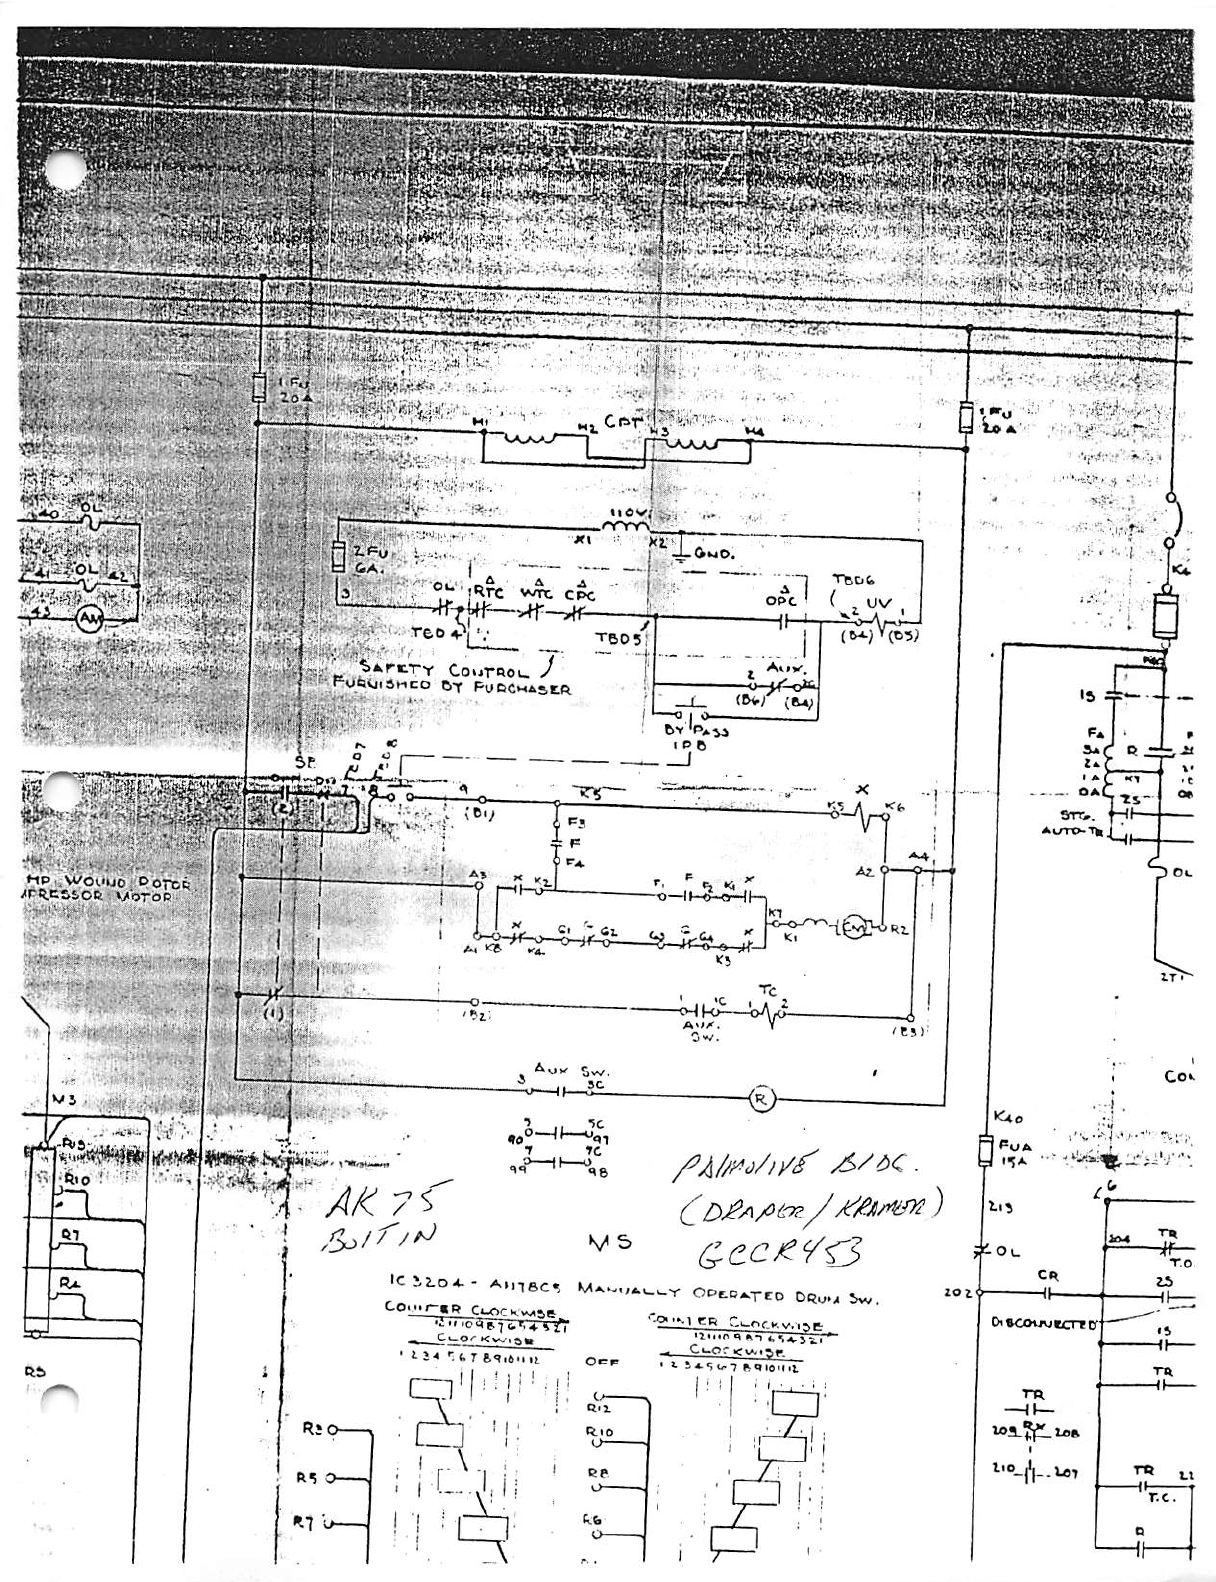 1FU
20A
H1
H2
CPT
H3
H4
1FU
20A
110V.
X1
X2
GND.
40
OL
41
OL
42
43
AM
2FU
6A.
3
OL
RTC
WTC
CPC
OPC
TBD6
2
UV
1
(B4)
(B5)
TBD4
TBD5
SAFETY CONTROL
FURNISHED BY PURCHASER
AUX.
2
2C
(B6)
(B4)
BY PASS
1PB
K4
1S
R
2S
STG.
AUTO-TR
OL
2T1
(2)
7
8
9
(B1)
K5
K5
X
K6
F3
F
F4
WOUND ROTOR
MOTOR
A3
X
K2
F1
F
F2
K1
X
A2
A4
K7
K1
R2
A1
K8
X
K4
G1
G
G2
G3
G
G4
K3
X
(1)
(B2)
1
1C
AUX.
SW.
1
TC
2
(B3)
AUX SW.
3
3C
R
M3
5C
90
97
7
7C
99
98
K40
FUA
15A
219
OL
202
CR
DISCONNECTED
204
TR
T.O
2S
1S
TR
TR
RX
209
208
210
207
TR
T.C.
R
R10
R7
R4
AK 75
BOLT IN
PALMOLIVE BLDG.
(DRAPER/KRAMER)
GCCR453
MS
IC3204 - A117BC5 MANUALLY OPERATED DRUM SW.
COUNTER CLOCKWISE
121110987654321
CLOCKWISE
1 2 3 4 5 6 7 8 9 10 11 12
OFF
COUNTER CLOCKWISE
121110987654321
CLOCKWISE
1 2 3 4 5 6 7 8 9 10 11 12
R3
R5
R7
R12
R10
R8
R6